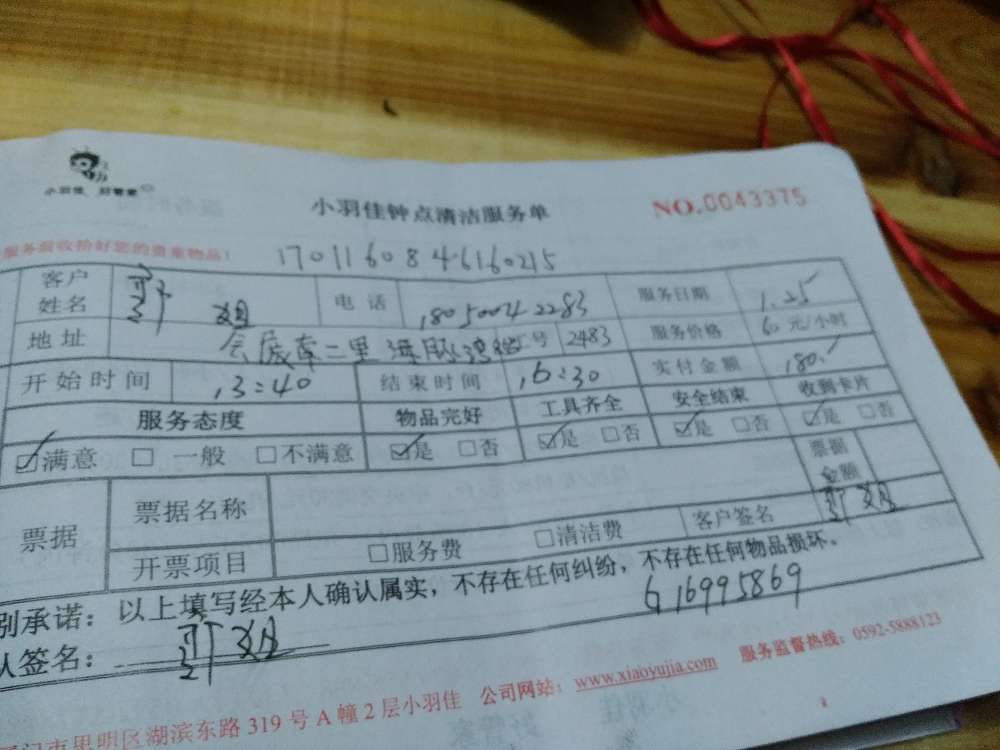 小羽佳 好管家
小羽佳钟点清洁服务单
NO.0043375
服务前收拾好您的贵重物品!
1701160846160215
客户姓名 姐 电话 18050042283 服务日期 1.25
地址 二里 工号 2483 服务价格 60元/小时
开始时间 13:40 结束时间 16:30 实付金额 180.
服务态度 物品完好 工具齐全 安全结束 收到卡片
☑满意 □一般 □不满意 ☑是 □否 ☑是 □否 ☑是 □否 ☑是 □否
票据 票据名称 票据金额
开票项目 □服务费 □清洁费 客户签名 姐
别承诺：以上填写经本人确认属实，不存在任何纠纷，不存在任何物品损坏。
人签名： 姐 G16995869
门市思明区湖滨东路319号A幢2层小羽佳 公司网站：www.xiaoyujia.com 服务监督热线：0592-5888123